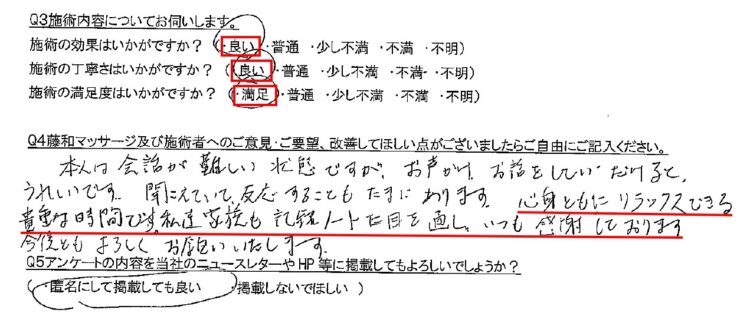 Q3施術内容についてお伺いします。
施術の効果はいかがですか？（・良い ・普通 ・少し不満 ・不満 ・不明）
施術の丁寧さはいかがですか？（・良い ・普通 ・少し不満 ・不満・ ・不明）
施術の満足度はいかがですか？（・満足 ・普通 ・少し不満 ・不満 ・不明）
Q4藤和マッサージ及び施術者へのご意見・ご要望、改善してほしい点がございましたらご自由にご記入ください。
本人は会話が難しい状態ですが、お声がけ、お話をしていただけると、
うれしいです。聞こえていて、反応することもたまにあります。心身ともにリラックスできる
貴重な時間です。私達家族も記録ノートに目を通し、いつも感謝しております
今後ともよろしくお願いいたします。
Q5アンケートの内容を当社のニュースレターやHP等に掲載してもよろしいでしょうか？
（ ・匿名にして掲載しても良い ・掲載しないでほしい ）